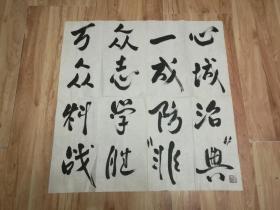 心城治"典"
一成防"非"
众志学胜
万众科战